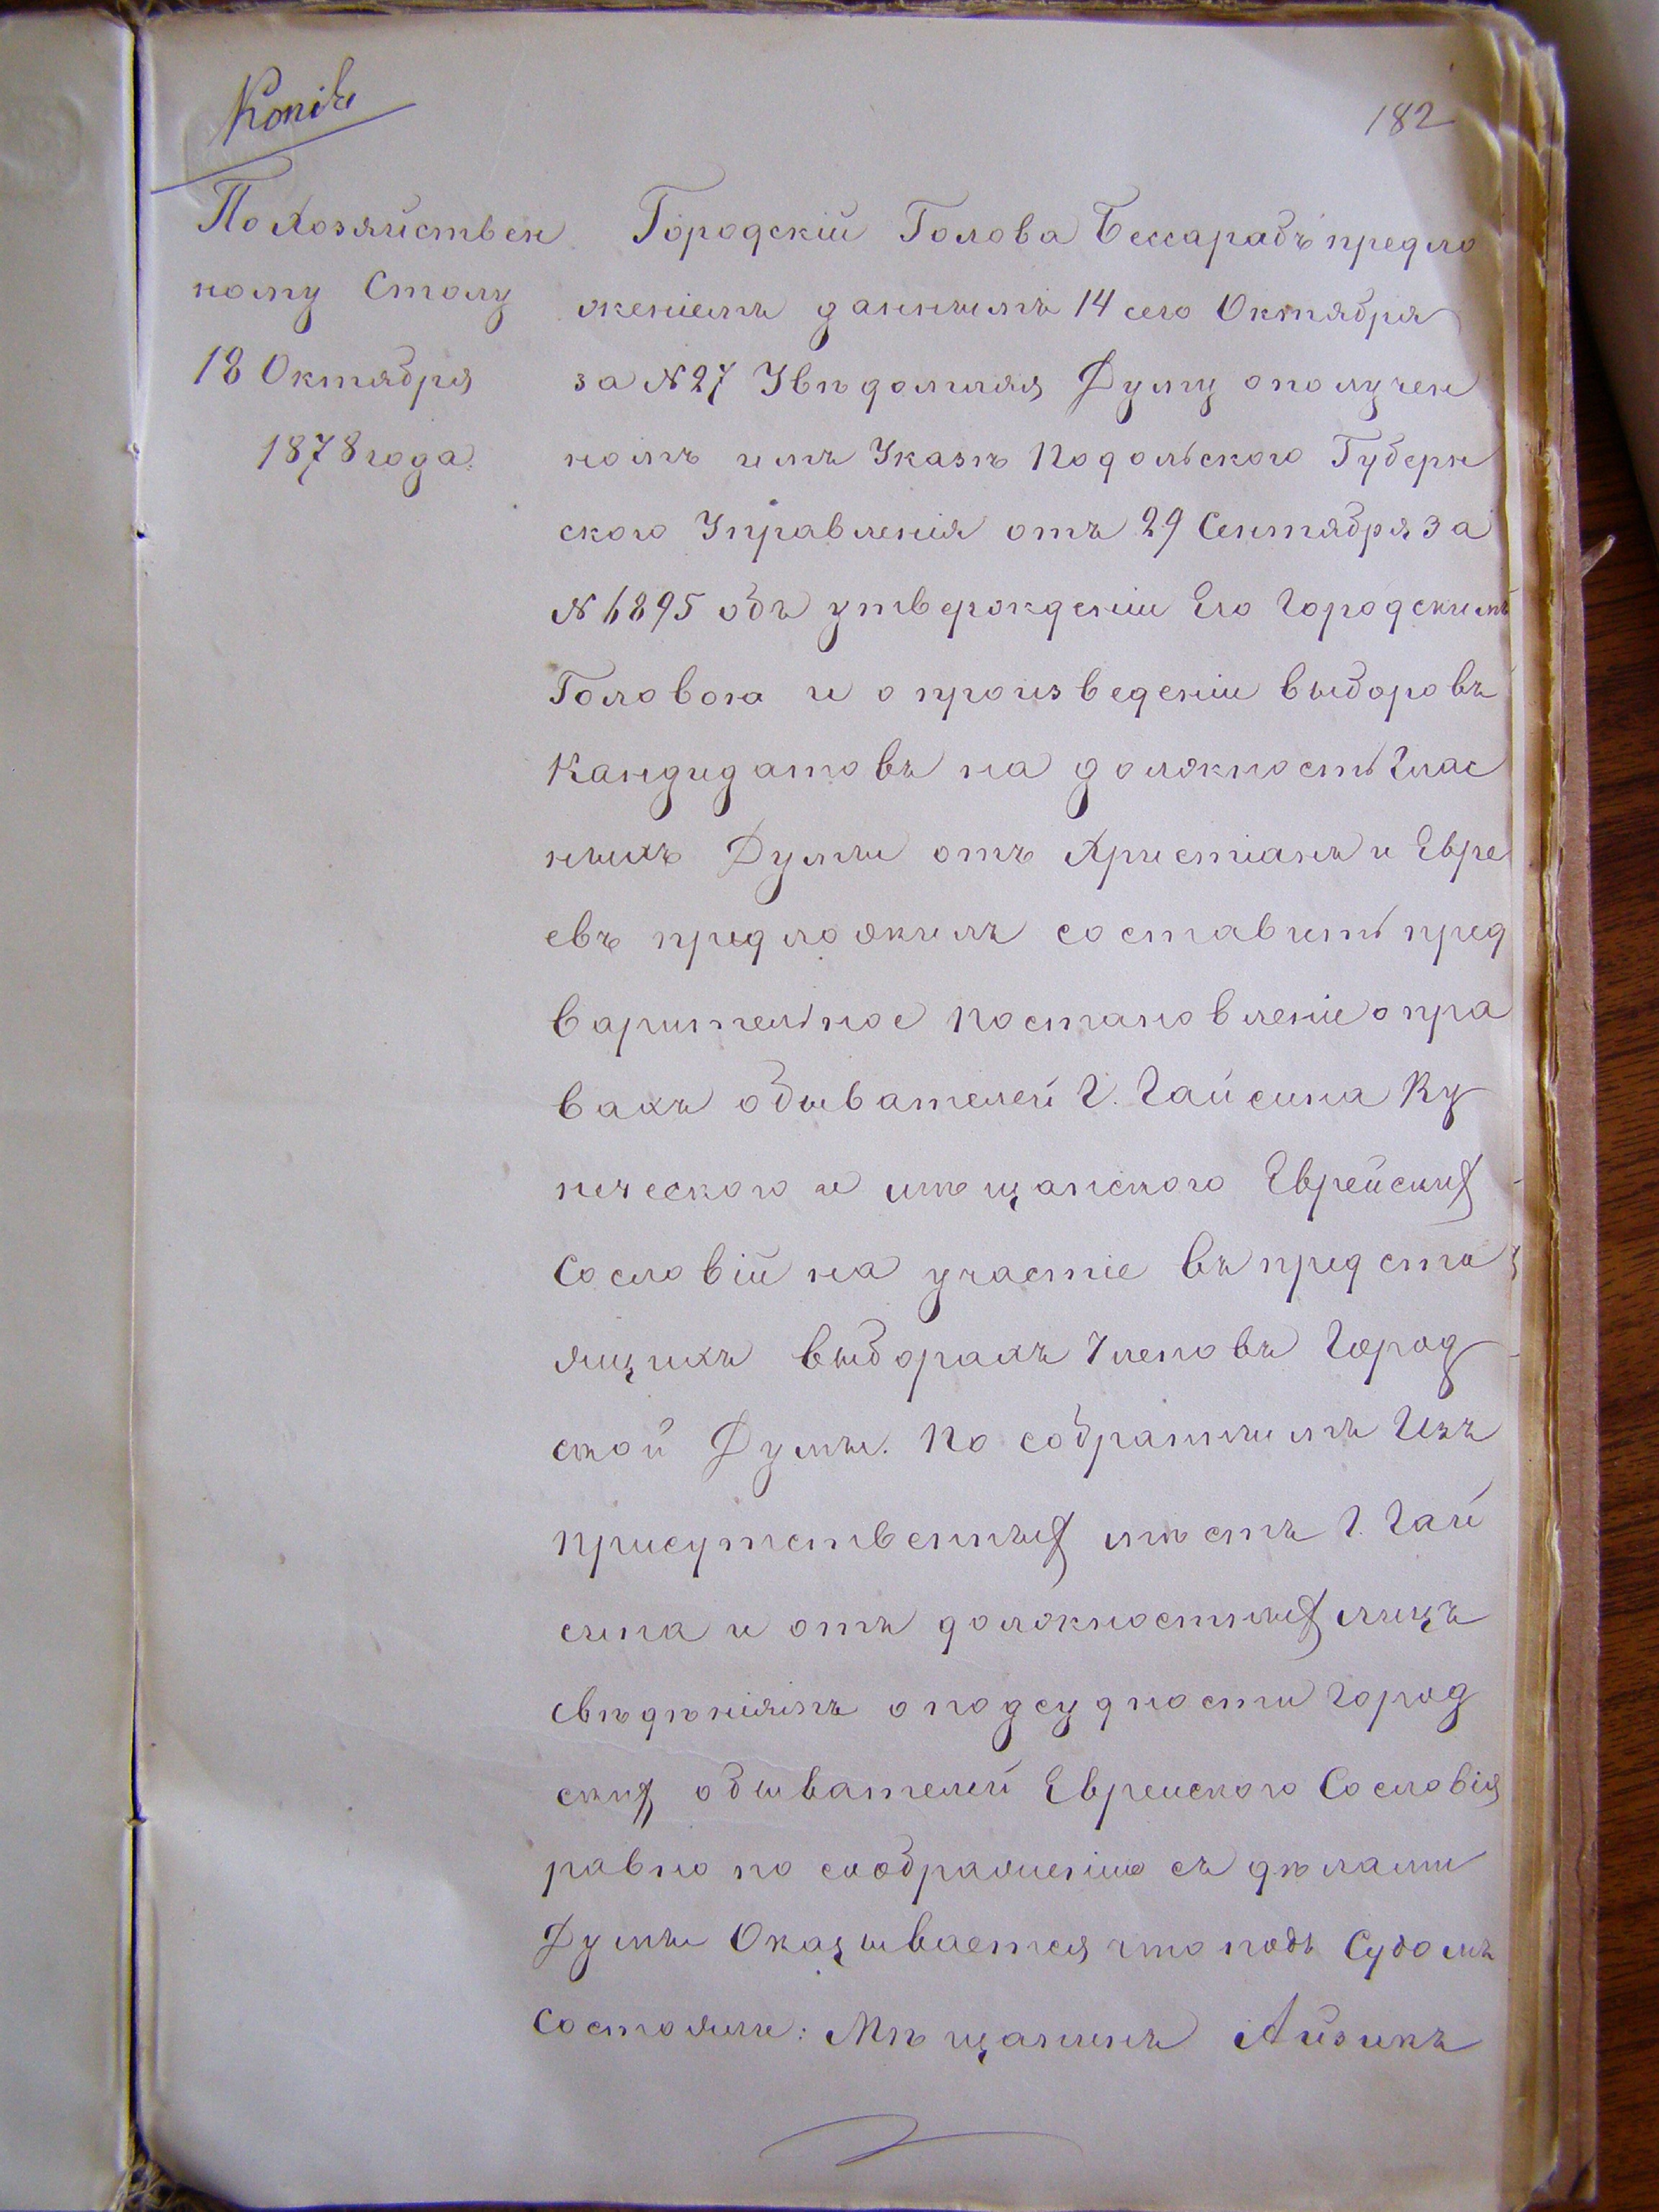 Копія
182
По Хозяйствен
ному Столу
18 Октября
1878 года.
Городскій Голова Бессарабъ предло
женіемъ даннымъ 14 сего Октября
за № 27 Увѣдомляя Думу о получен
номъ имъ Указѣ Подольского Губерн
ского Управленія отъ 29 Сентября за
№ 6895 объ утвержденіи Его Городскимъ
Головою и о произведеніи выборовъ
Кандидатовъ на должность Глас
ныхъ Думы отъ Христіанъ и Евре
евъ предложилъ составить пред
варительное постановленіе о пра
вахъ обывателей Г. Гайсина Ку
печеского и мѣщанского Еврейских
Сословій на участіе въ предсто
ящихъ выборахъ Членовъ Город
ской Думы. По собраннымъ Изъ
присутственных мѣстъ Г. Гай
сина и отъ должностных лицъ
свѣдѣніямъ о подсудности Город
ских обывателей Евреиского Сословія
равно по соображенію съ дѣлами
Думы Оказывается что подъ Судомъ
Состояли: Мѣщанинъ Айзикъ